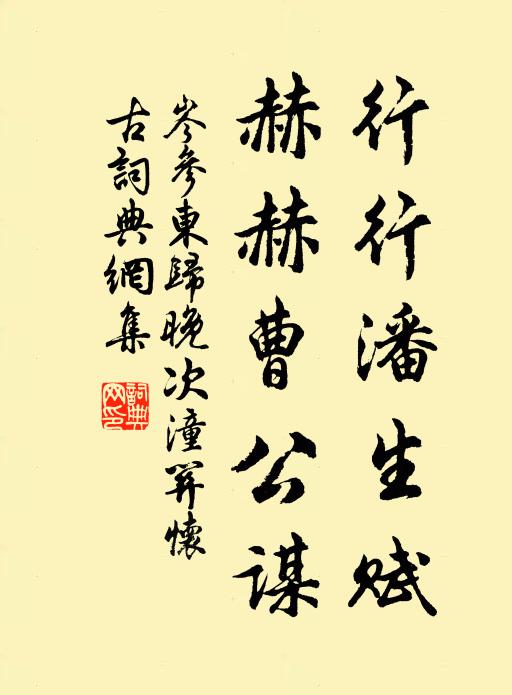 行行潘生赋
赫赫曹公謀
岑參東歸晚次潼關懷
古詞典網集
詞典
网印